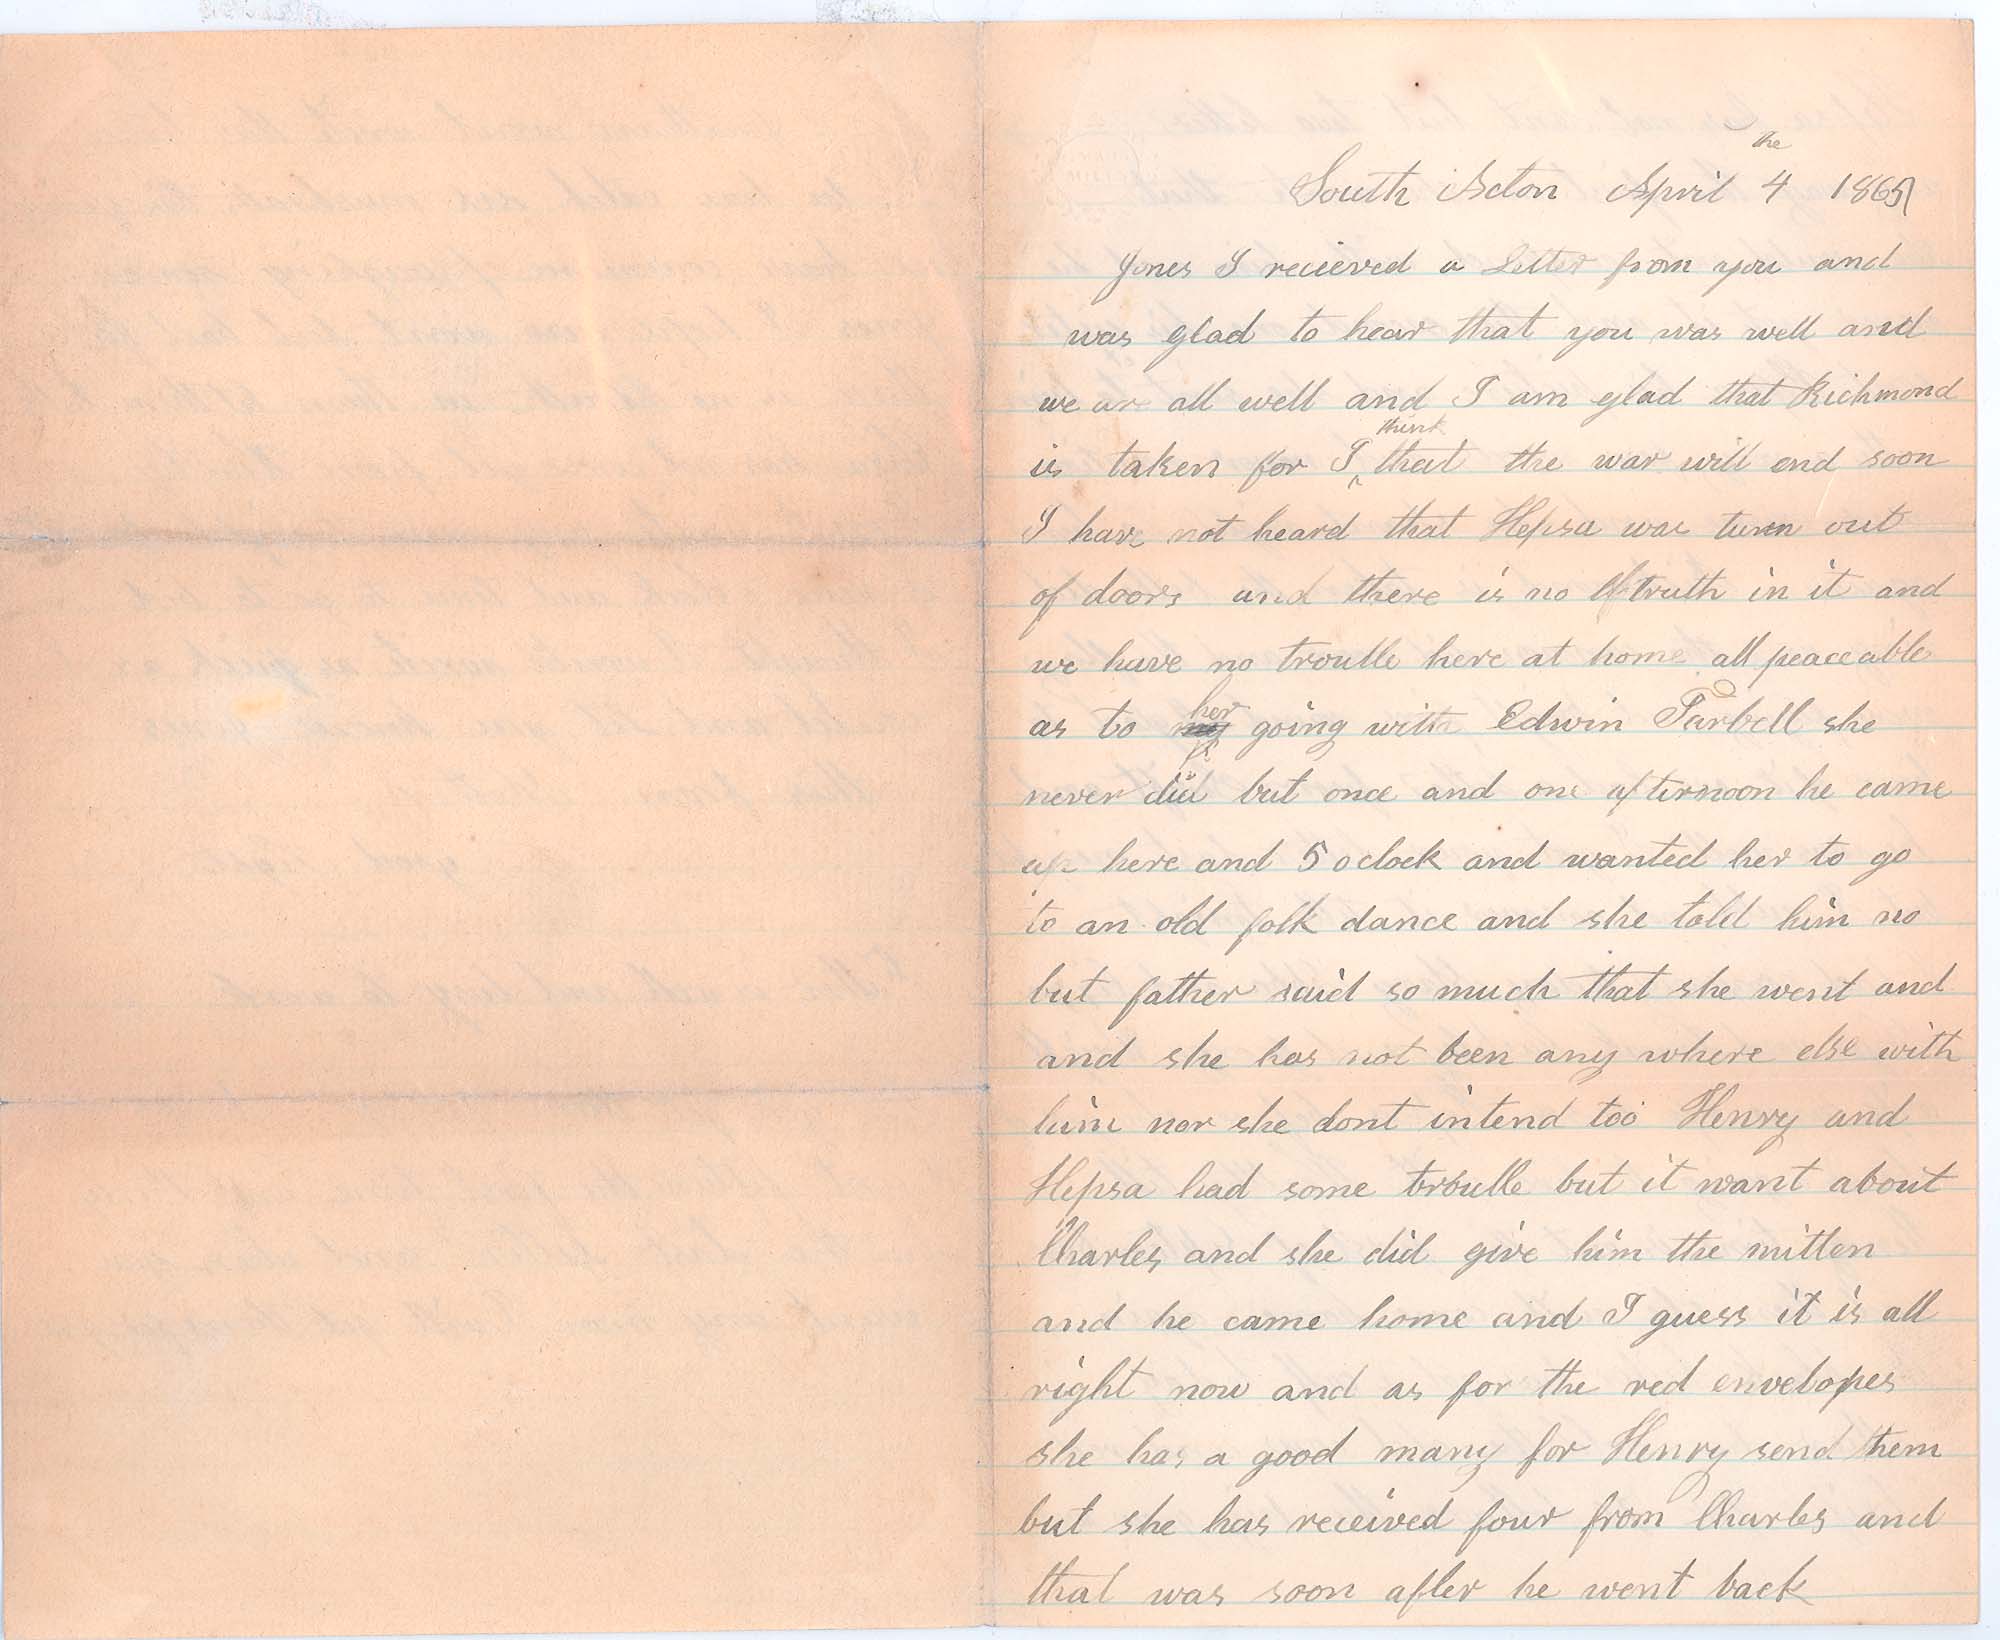 South Acton April 4 the 1865
Jones I recieved a Letter from you and
was glad to hear that you was well and
we are all well and I am glad that Richmond
is taken for I think that the war will end soon
I have not heard that Hepsa was turn out
of doors and there is no truth in it and
we have no troulle here at home all peaceable
as to her going with Edwin Tarbell she
never did but once and one afternoon he came
up here and 5 oclock and wanted her to go
to an old folk dance and she told him no
but father said so much that she went and
and she has not been any where else with
him nor she dont intend too Henry and
Hepsa had some troulle but it want about
Charles and she did give him the mitten
and he came home and I guess it is all
right now and as for the red envelopes
she has a good many for Henry send them
but she has received four from Charles and
that was soon after he went back